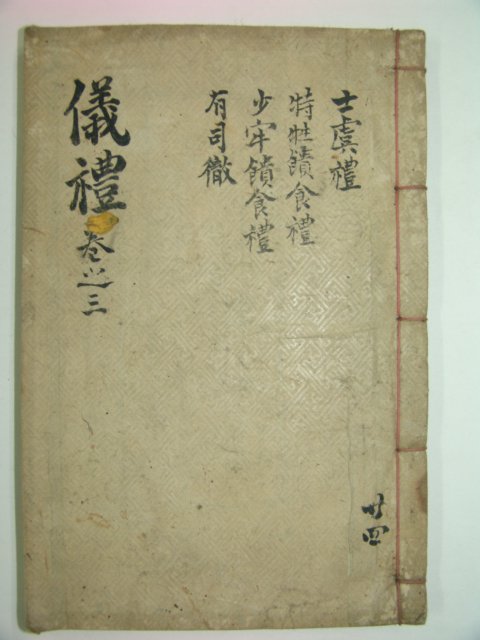 士虞禮
特牲饋食禮
少牢饋食禮
有司徹
儀禮 卷之三
廿四